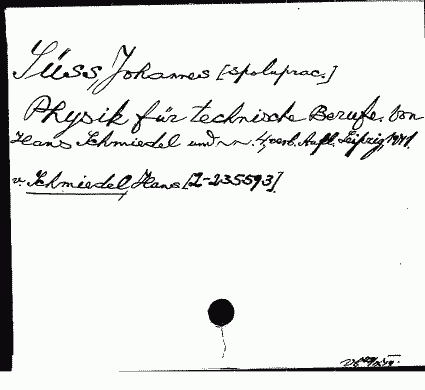 Süss, Johannes [spoluprac.]
Physik für technische Berufe. Von
Hans Schmiedel und ~~. 4., verb. Aufl. Leipzig, 1971.
v. Schmiedel, Hans [2-235593]